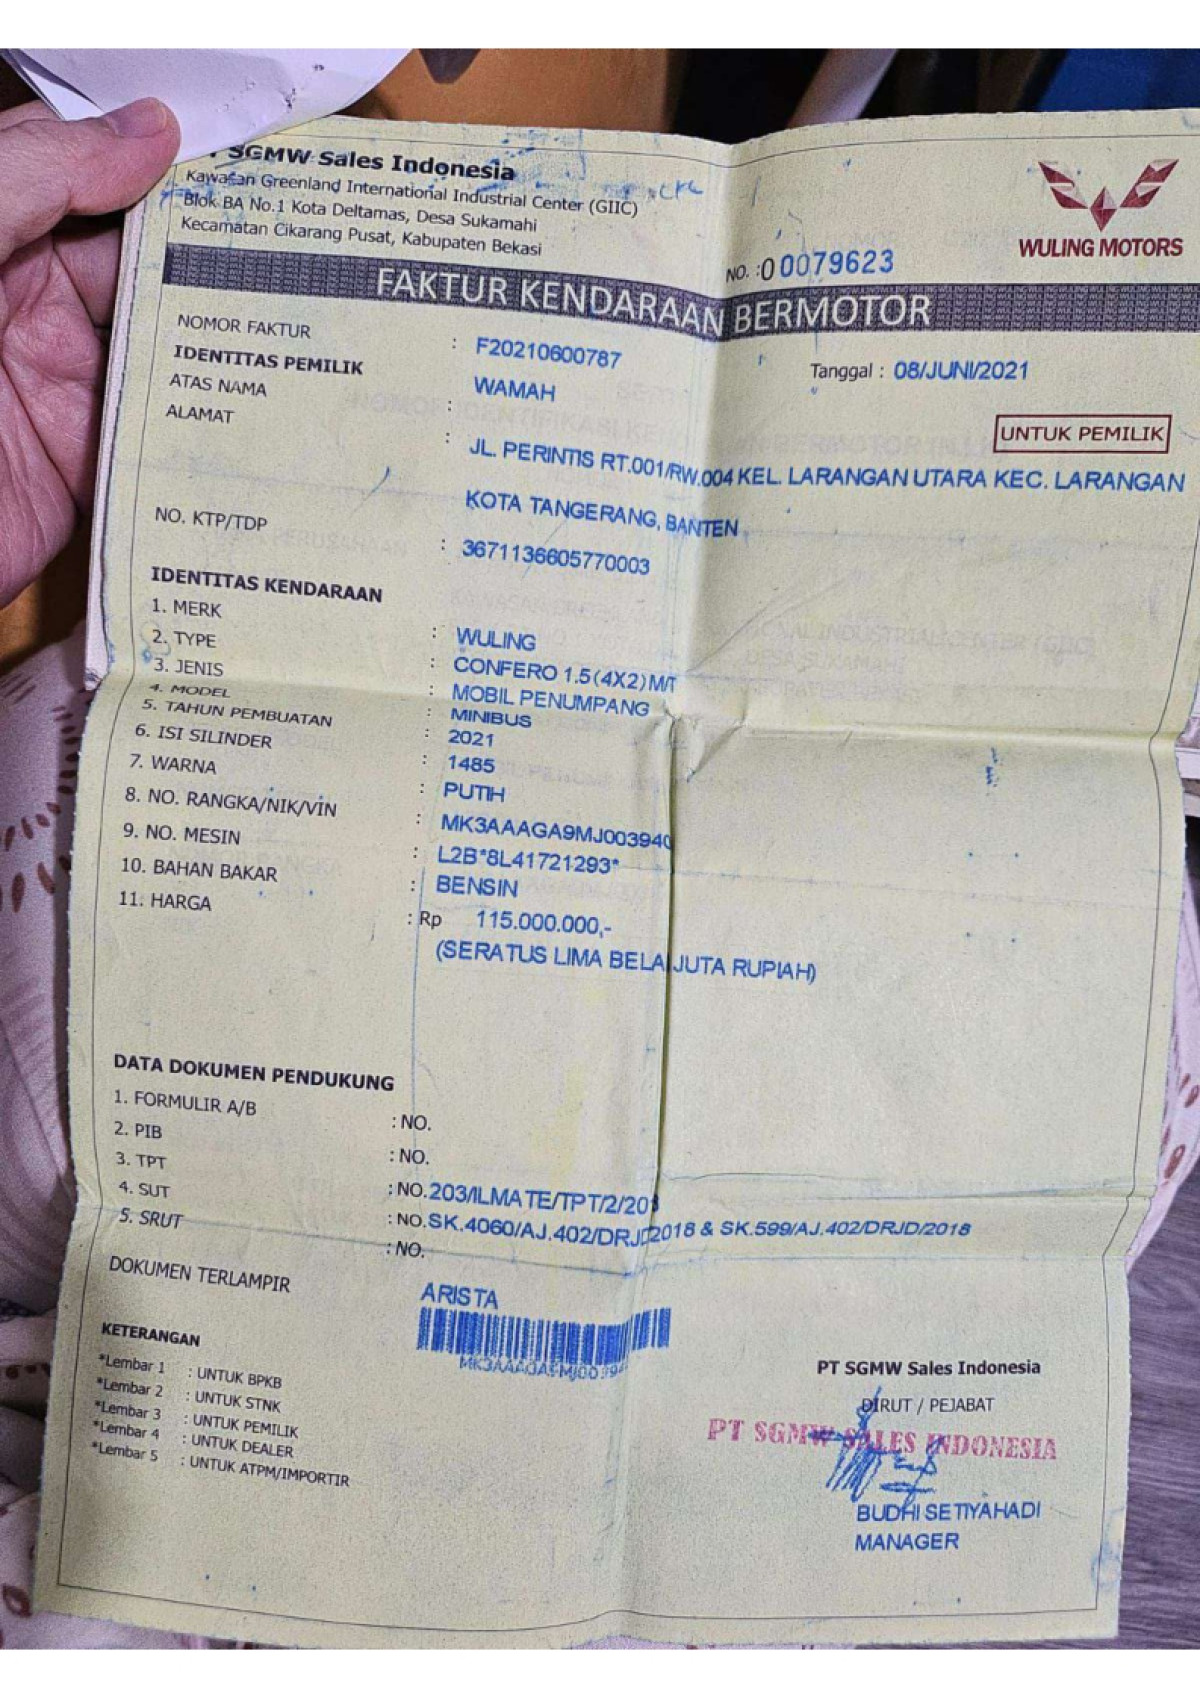 SGMW Sales Indonesia
Kawasan Greenland International Industrial Center (GIIC)
Blok BA No.1 Kota Deltamas, Desa Sukamahi
Kecamatan Cikarang Pusat, Kabupaten Bekasi
WULING MOTORS
NO. : 0 0079623
FAKTUR KENDARAAN BERMOTOR
NOMOR FAKTUR : F20210600787
Tanggal : 08/JUNI/2021
IDENTITAS PEMILIK
ATAS NAMA : WAMAH
UNTUK PEMILIK
ALAMAT : JL. PERINTIS RT.001/RW.004 KEL. LARANGAN UTARA KEC. LARANGAN
KOTA TANGERANG, BANTEN
NO. KTP/TDP : 3671136605770003
IDENTITAS KENDARAAN
1. MERK : WULING
2. TYPE : CONFERO 1.5 (4X2) M/T
3. JENIS : MOBIL PENUMPANG
4. MODEL : MINIBUS
5. TAHUN PEMBUATAN : 2021
6. ISI SILINDER : 1485
7. WARNA : PUTIH
8. NO. RANGKA/NIK/VIN : MK3AAAGA9MJ003940
9. NO. MESIN : L2B*8L41721293*
10. BAHAN BAKAR : BENSIN
11. HARGA : Rp 115.000.000,-
(SERATUS LIMA BELA JUTA RUPIAH)
DATA DOKUMEN PENDUKUNG
1. FORMULIR A/B : NO.
2. PIB : NO.
3. TPT : NO. 203/ILMATE/TPT/2/201
4. SUT : NO. SK.4060/AJ.402/DRJD/2018 & SK.599/AJ.402/DRJD/2018
5. SRUT : NO.
DOKUMEN TERLAMPIR
ARISTA
KETERANGAN
*Lembar 1 : UNTUK BPKB
*Lembar 2 : UNTUK STNK
*Lembar 3 : UNTUK PEMILIK
*Lembar 4 : UNTUK DEALER
*Lembar 5 : UNTUK ATPM/IMPORTIR
PT SGMW Sales Indonesia
DIRUT / PEJABAT
PT SGMW SALES INDONESIA
BUDHI SETIYAHADI
MANAGER